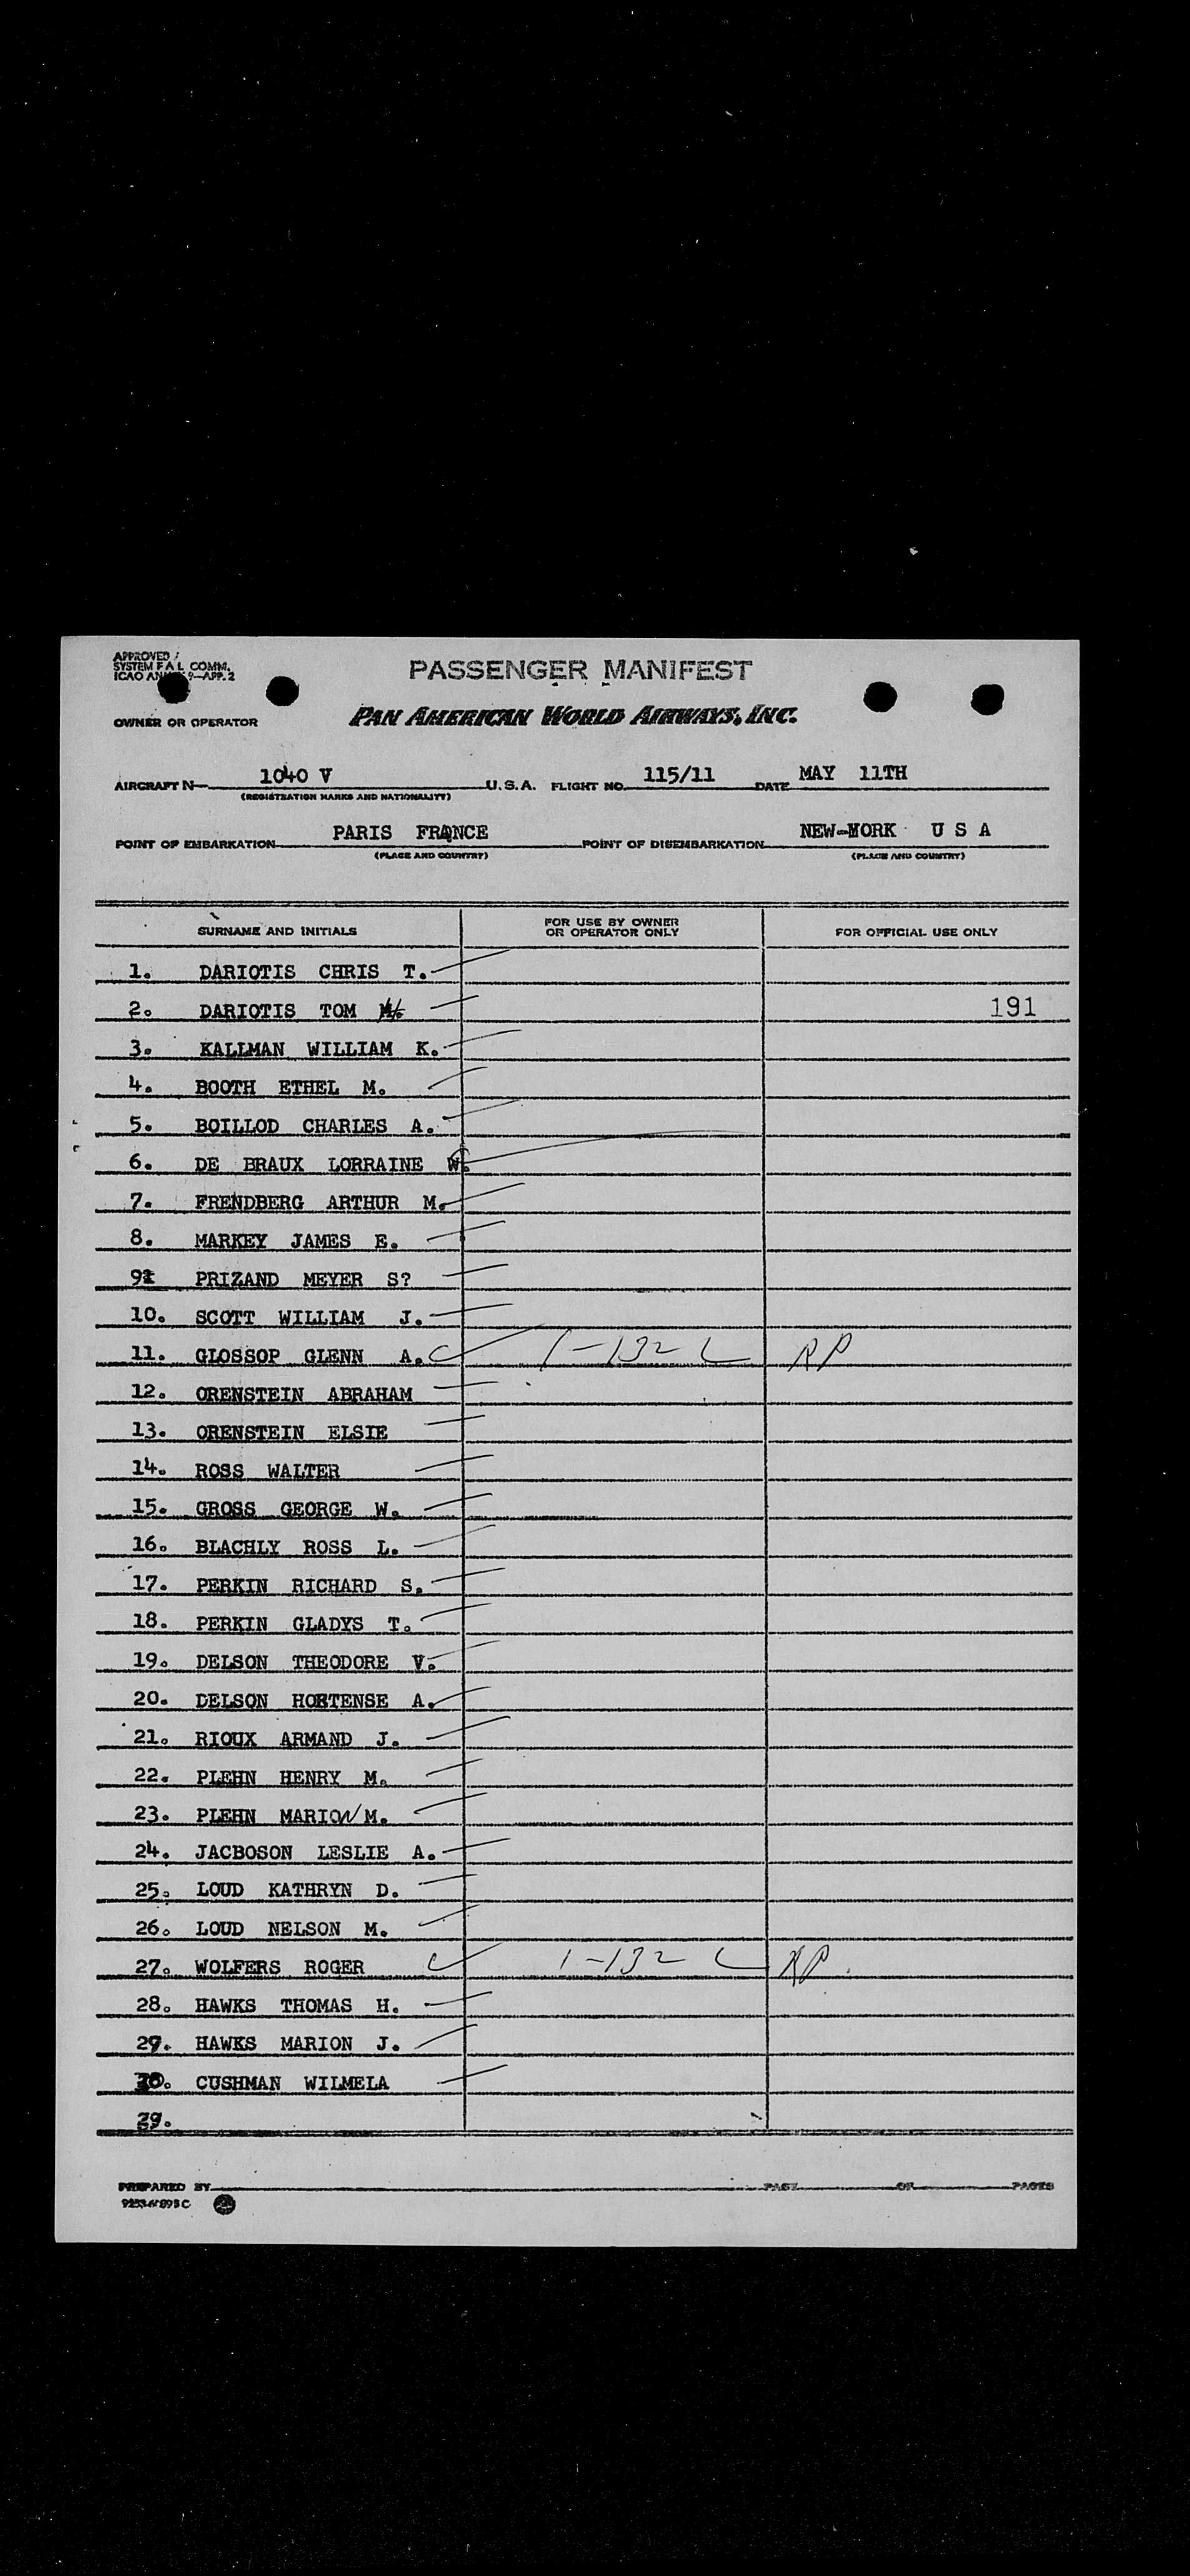 APPROVED
SYSTEM F A L COMM.
ICAO ANNEX 9—APP. 2
PASSENGER MANIFEST
OWNER OR OPERATOR PAN AMERICAN WORLD AIRWAYS, INC.
AIRCRAFT N— 1040 V U.S.A. FLIGHT NO. 115/11 DATE MAY 11TH
(REGISTRATION MARKS AND NATIONALITY)
POINT OF EMBARKATION PARIS FRANCE POINT OF DISEMBARKATION NEW-YORK U S A
(PLACE AND COUNTRY) (PLACE AND COUNTRY)
SURNAME AND INITIALS FOR USE BY OWNER OR OPERATOR ONLY FOR OFFICIAL USE ONLY
1. DARIOTIS CHRIS T.
2. DARIOTIS TOM 191
3. KALLMAN WILLIAM K.
4. BOOTH ETHEL M.
5. BOILLOD CHARLES A.
6. DE BRAUX LORRAINE W.
7. FRENDBERG ARTHUR M.
8. MARKEY JAMES E.
9. PRIZAND MEYER S?
10. SCOTT WILLIAM J.
11. GLOSSOP GLENN A. C 1-132 L RP
12. ORENSTEIN ABRAHAM
13. ORENSTEIN ELSIE
14. ROSS WALTER
15. GROSS GEORGE W.
16. BLACHLY ROSS L.
17. PERKIN RICHARD S.
18. PERKIN GLADYS T.
19. DELSON THEODORE V.
20. DELSON HORTENSE A.
21. RIOUX ARMAND J.
22. PLEHN HENRY M.
23. PLEHN MARION M.
24. JACBOSON LESLIE A.
25. LOUD KATHRYN D.
26. LOUD NELSON M.
27. WOLFERS ROGER C 1-132 L RP
28. HAWKS THOMAS H.
29. HAWKS MARION J.
30. CUSHMAN WILMELA
29.
PREPARED BY PAGE OF PAGES